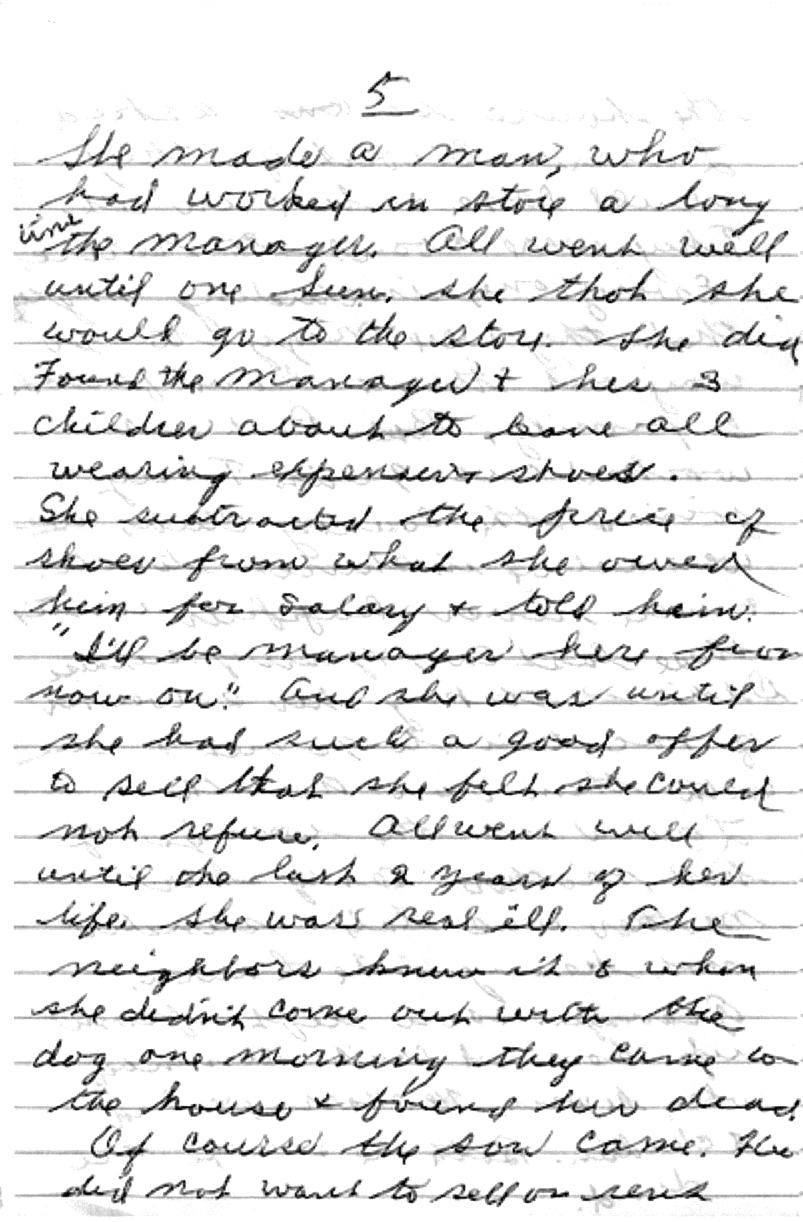 5
She made a man, who
had worked in store a long
time
the manager. All went well
until one Sun. she thot she
would go to the store. She did
Found the manager + his 3
children about to leave all
wearing expensive shoes.
She subtracted the price of
shoes from what she owed
him for salary + told him.
"I'll be manager here from
now on." And she was until
she had such a good offer
to sell that she felt she could
not refuse. All went well
until the last 2 years of her
life. She was real ill. The
neighbors knew it & when
she didn't come out with the
dog one morning they came to
the house + found her dead.
Of course the son came. He
did not want to sell or rent